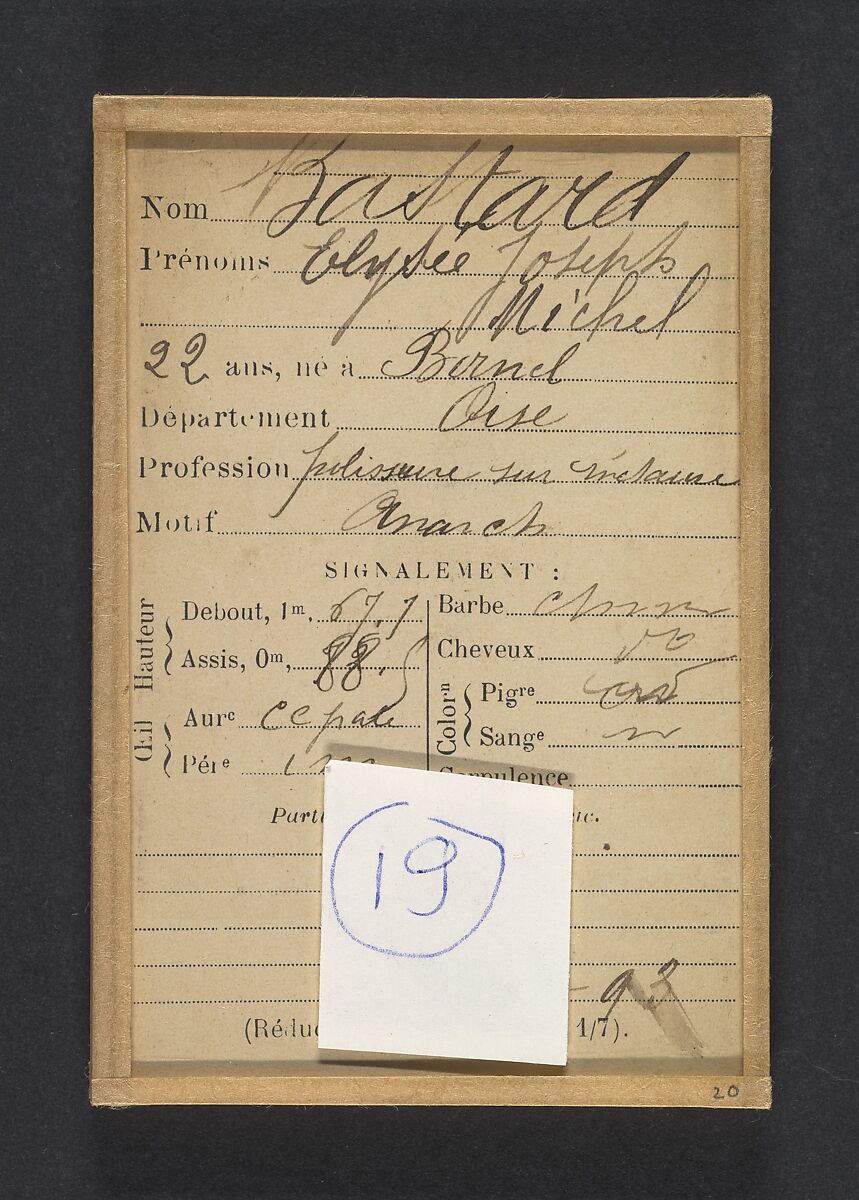 Nom Bastard
Prénoms Elysée Joseph
Michel
22 ans, né à Bornel
Département Oise
Profession polisseur sur
Motif Anarch
SIGNALEMENT :
Hauteur
Debout, 1m, 67,1
Assis, 0m, 88,5
Œil
Aurᶜ
Périᵉ
Barbe
Cheveux dº
Colorⁿ
Pigrᵉ
Sangᵉ
Corpulence
Parti
etc.
19
93
(Réduc
1/7).
20